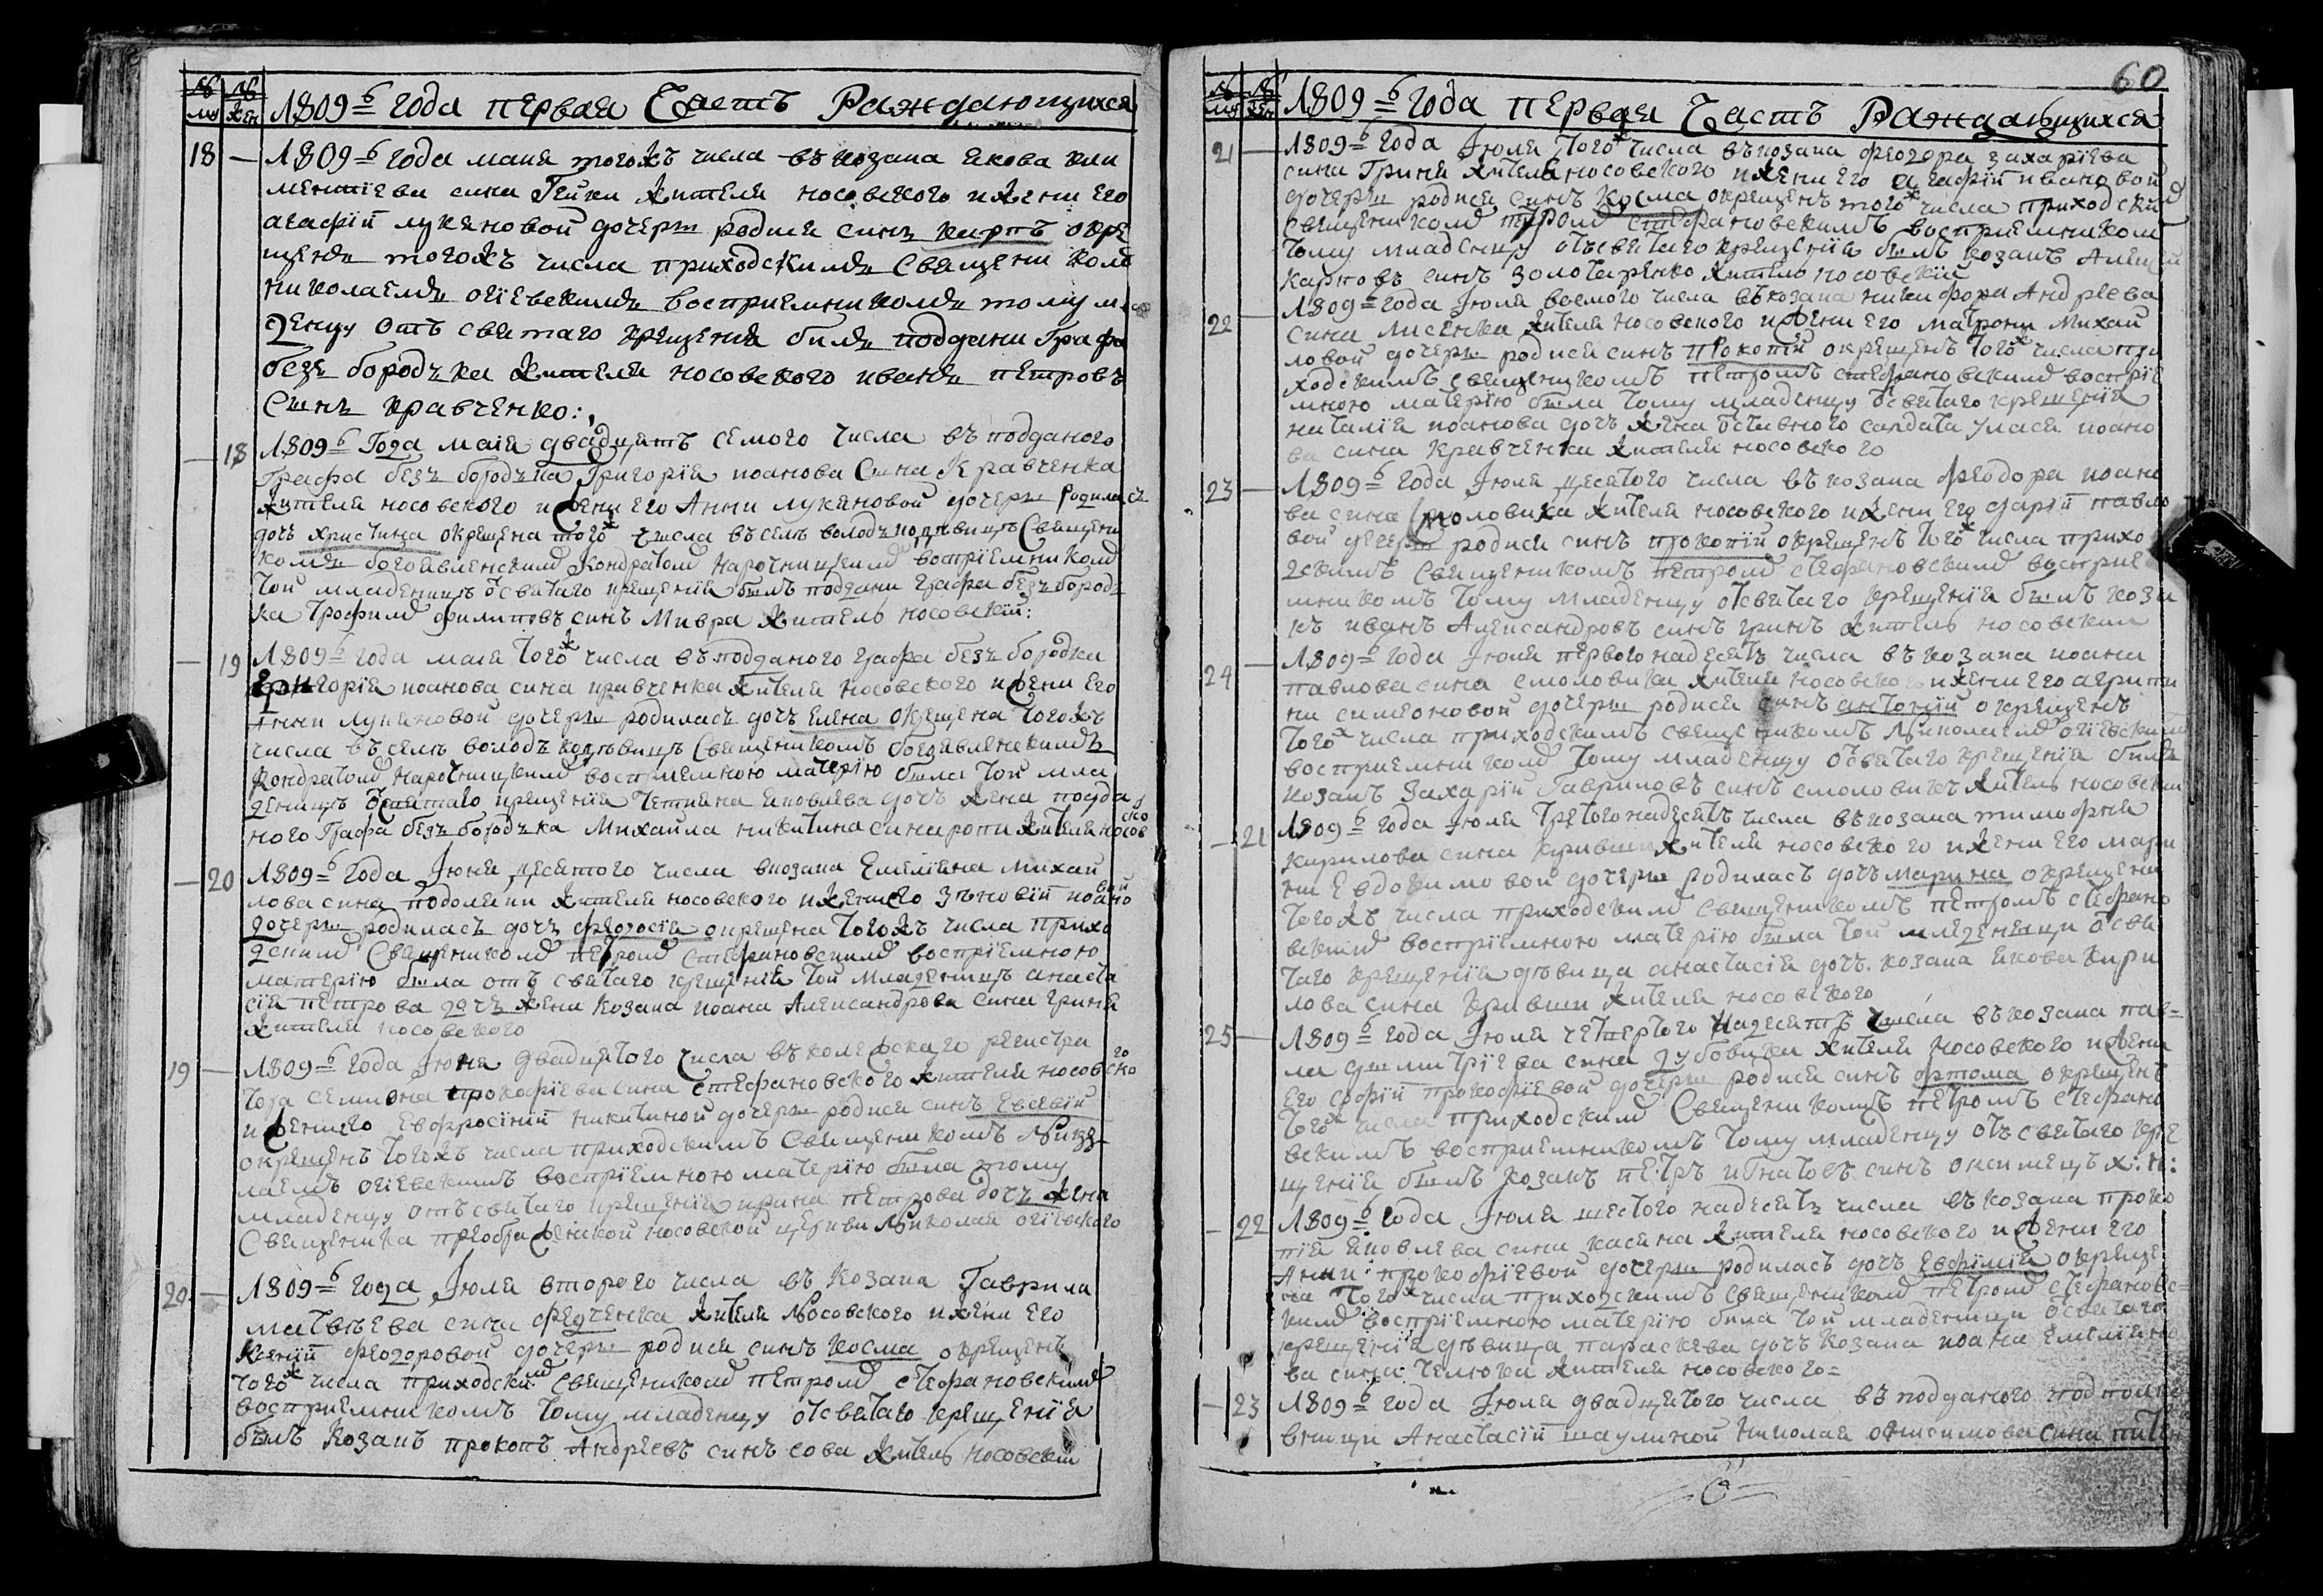 № му № жен 1809г года первая Часть Раждающихся
18 — 1809г года маия тогожъ числа въ козака Якова кли
ментиева сина Гейки жителя носовского и жени его
агафіи лукяновой дочеры родися синъ карпъ окре
щенъ тогожъ числа приходскимъ Священи комъ
николаемъ огіевскимъ восприемникомъ тому мла
денцу отъ святаго крещения билъ поддани Графа
безъ бородъка жителя носовского иванъ петровъ
Сынъ кравченко:,
— 18 1809г Года маія двадцять семого числа въ подданого
Графа безъ бородъка Григорія иоанова Сина Кравченка
жителя носовского и жени его Анни лукяновой дочеры родилась
дочъ христина окрещена того ж числа въ селѣ володъкодѣвицѣ Священи
комъ богоявленскимъ Кондратомъ нарочницкимъ воспріемникомъ
той младеницѣ о святаго крещенія билъ поддани графа безъ бородъ
ка Трофимъ филиповъ синъ Мивра житель носовскій:
— 19 1809г года маія того ж числа въ подданого графа безъ бородки
Григорія иоанова сина кравченка жителя носовского и жени его
Анни лукяновой дочеры родилась дочъ елена окрещена тогожъ
числа въ селѣ володъкодѣвицѣ Священикомъ богоявленскимъ
Кондратомъ нарочницкимъ восприемною материю была той мла
деницѣ о святаго крещенія Тетияна яковлева дочъ жена подда
ного Графа безъ бородъка Михаила никитина сина ропи жителя носовско
— 20 1809г года Іюня десятого числа в козака Емеліяна михаи
лова сина подоляки жителя носовского и жени его зѣновіи иоановой
дочеры родилась дочъ феодосія окрещена тогожъ числа прихо
дскимъ Священикомъ петромъ стефановскимъ воспріемною
материю была отъ святаго крещенія той младеницѣ анаста
сія петрова дочъ жени козака иоана Александрова сина гриня
жителя носовского
19 — 1809г года Іюня двадцятого числа въ колежскаго регистра
тора семиона прокофіева сина стефановского жителя носовско го
и жени его Евфросіній никитиной дочеры родися синъ Евсевій
окрещенъ тогожъ числа приходскимъ Священикомъ Нико
лаемъ огіевскимъ воспріемною матерію была тому
младенцу отъ святаго крещенія ирина петрова дочъ жена
Священика преображенской носовской церкви Николая огіевского
20 — 1809г года Іюля второго числа въ Козака Гаврила
матвѣева сина федченка жителя Носовского и жени его
ксеніи феодоровой дочеры родися синъ косма окрещенъ
того ж числа приходскимъ Священикомъ петромъ стефановскимъ
восприемникомъ тому младенцу отсвятаго крещенія
былъ Козакъ прокопъ Андреевъ синъ сова житель носовски
60
№ му № жен 1809г года первая Часть Раждающихся
21 — 1809г года Іюля того ж числа въ козака феодора захаріева
сина Гриня жителя носовского и жени его агафіи ивановой
дочеры родися синъ косма окрещенъ того ж числа приходским
Священикомъ петромъ стефановскимъ восприемникомъ
тому младенцу отъсвятаго крещенія былъ козакъ Алексей
карповъ синъ золотаренко житель носовскій
22 — 1809г года Іюля восмого числа въ козака никифора Андреева
сина лисенка жителя носовского и жени его матрони михаи
ловой дочеры родися синъ прокопій окрещенъ того ж числа при
ходскимъ священикомъ петромъ стефановскимъ воспріе
мною материю была тому младенцу о святаго крещенія
наталія иоанова дочъ жена отставного салдата уласа иоано
ва сина кравченка жителя носовского
23 — 1809г года Іюля десятого числа въ козака феодора иоано
ва сина смоловика жителя носовского и жени его даріи павло
вой дочеры родися синъ прокопій окрещенъ того ж числа прихо
дскимъ Священикомъ петромъ стефановскимъ восприе
мникомъ тому младенцу отсвятаго крещенія былъ коза
къ иванъ Александровъ синъ гринъ житель носовскии
24 — 1809г года Іюля первого надесять числа въ козака иоана
павлова сина смоловика жителя носовского и жени его агрипи
ни симеоновой дочеры родися синъ антоній окрещенъ
того ж числа приходскимъ священикомъ Николаемъ огіевским
восприемникомъ тому младенцу о святаго крещенія билъ
козакъ Захарій Гавриловъ синъ смоловикъ житель носовски
— 21 1809г года Іюля третого надесять числа въ козака тимофия
кирилова сина кривши жителя носовского и жени его мари
ни Евдокимовой дочеры родилась дочъ марина окрещени
тогожъ числа приходскимъ Священикомъ петромъ стефано
вскимъ воспріемною матерію была той младеници о свя
таго крещенія дѣвица анастасія дочъ козака якова кири
лова сина кривши жителя носовского
25 — 1809г года Іюля четвертого надесять числа въ козака пав=
ла дмитріева сина дубовика жителя носовского и жени
его софіи прокофіевой дочеры родися синъ фтома окрещенъ
того ж числа приходскимъ Священикомъ петромъ стефано
вскимъ восприемникомъ тому младенцу отъ святаго кре
щенія былъ козакъ петръ игнатовъ синъ оксимецъ ж: н:
— 22 1809г года Іюля шестого надесять числа въ козака проко
пія яковлева сина касяна жителя носовского и жени его
Анни: прокофіевой дочеры родилась дочъ Евфимія окреще
на того ж числа приходскимъ священикомъ петромъ стефановс=
кимъ воспріемною матерію била той младеници о святаго
крещенія дѣвица параскева дочъ козака иоана емеліяно
ва сина: телюка жителя носовского=
— 23 1809г года Іюля двадцятого числа въ подданого подполко
вници Анастасіи шаулиной Николая онисимова сина